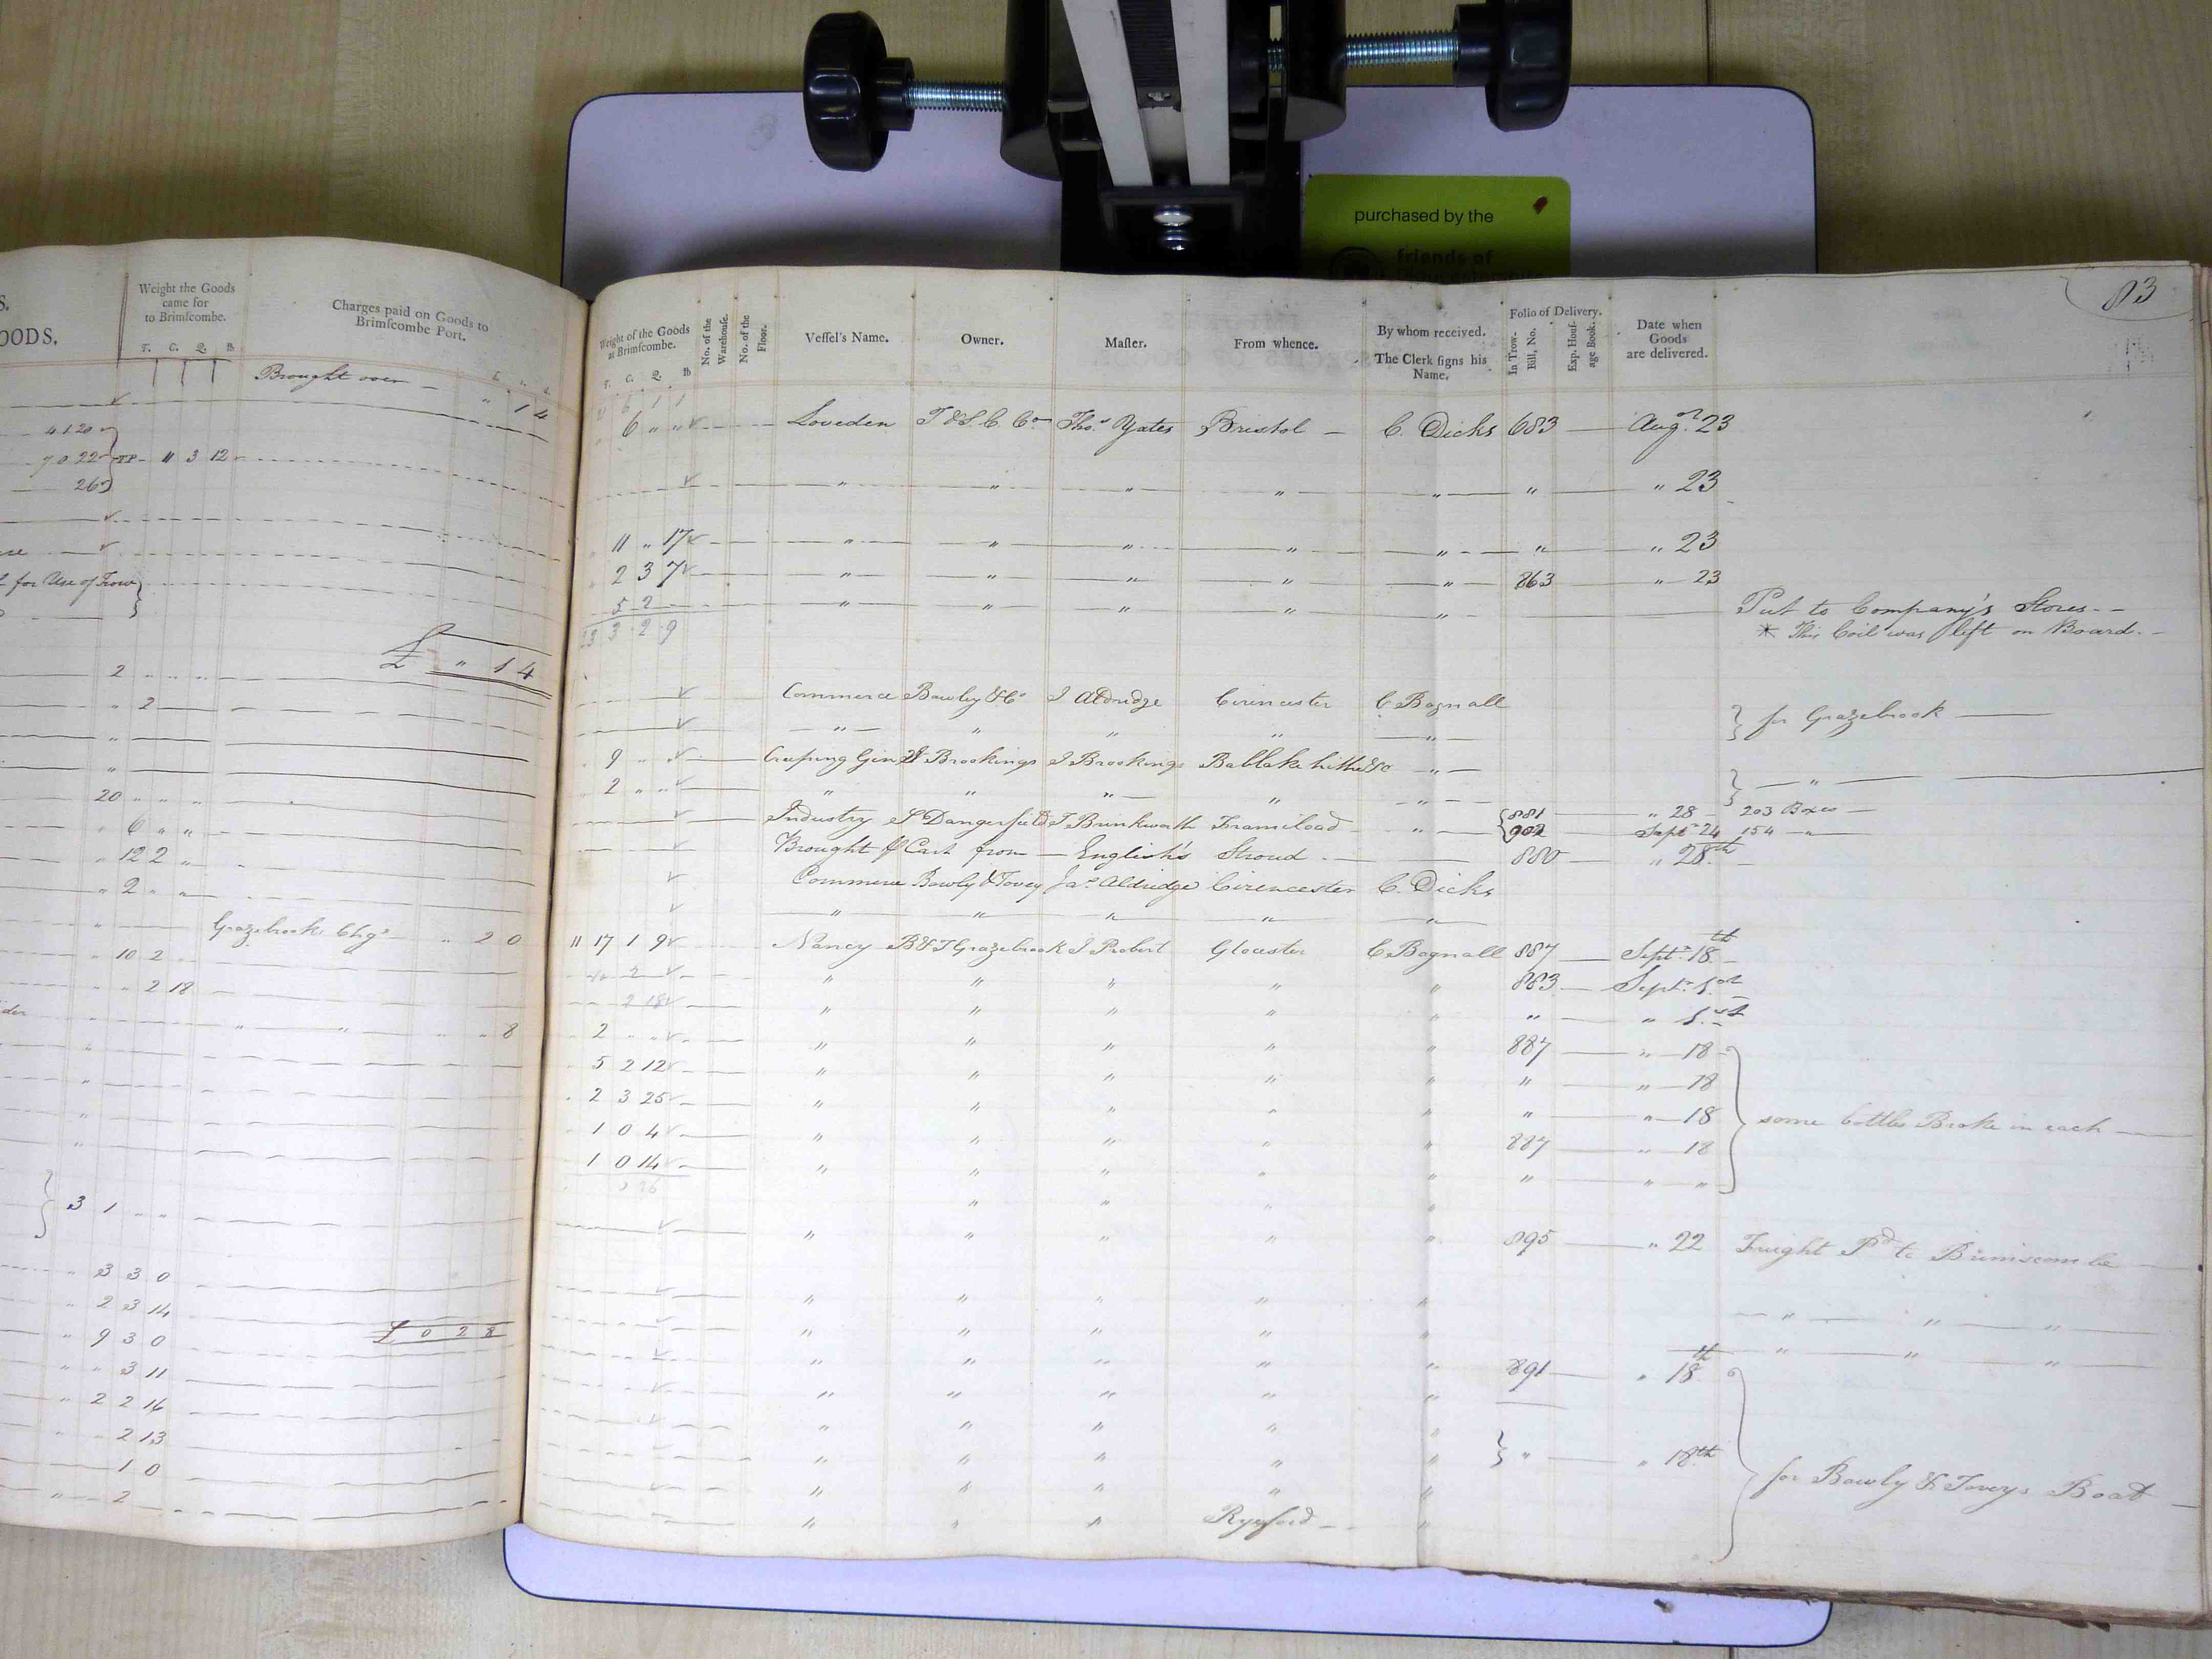 purchased by the
friends of
83
S.
OODS.
Weight the Goods
came for
to Brimſcombe.
T. C. Q. lb
Charges paid on Goods to
Brimſcombe Port.
Brought over —
" 1 4
4 1 20
7 0 22 TP - 11 3 12
26
for Use of Trow
£ " 1 4
2
" 2
20 " " "
" 6 " "
" 12 2 "
" 2 " "
Grazebrooks Chgs " 2 0
" 10 2
" " 2 18
" " " " 8
3 1 " "
" 3 3 0
" 2 3 14
" 9 3 0
" " 3 11
" 2 2 14
" " 2 13
1 0
" 2
£ 0 2 8
Weight of the Goods
at Brimſcombe.
T. C. Q. lb
No. of the
Warehouſe.
No. of the
Floor.
Veſſel's Name.
Owner.
Maſter.
From whence.
By whom received.
The Clerk ſigns his
Name.
Folio of Delivery.
In Trow-
Bill, No.
Exp. Houſ-
age Book.
Date when
Goods
are delivered.
6 " " Loveden T & S. C. Co Thos Yates Bristol — C. Dicks 683 — Augt 23
" " " " " " " 23
11 " 17 " " " " " " " 23
2 3 7 " " " " " 863 " 23
5 2 " " " " " Put to Company's Stores - -
3 2 9 * This Coil was left on Board. -
Commerce Bowly & Co J Aldridge Cirencester C Bagnall
" " " " " } for Grazebrook
9 " " Brookings J Brookings Bablake "
2 " " " " " " " } "
Industry S Dangerfield T Brinkworth Framiload " 881 " 28 - 203 Boxes —
902 Sept 24 154 "
Brought Cart from — English's Stroud — 880 " 28th
Commerce Bowly & Tovey Jas Aldridge Cirencester C. Dicks
" " " " "
11 17 1 9 Nancy B & T Grazebrook J Probert Glocester C Bagnall 887 Septr 18th
2 " " " " " 883 Septr 1st
2 18 " " " " " " " 1st
2 " " " " " " " 887 " 18
5 2 12 " " " " " " " 18
2 3 25 " " " " " " " 18 } some bottles Broke in each
1 0 4 " " " " " 887 " 18
1 0 14 " " " " " " " "
" " " "
" " " " " 895 " 22 Freight Pd to Brimscombe
" " " " " " " "
" " " " " " " "
" " " " " 891 " 18th
" " " " "
" " " " "
" " " " " } " " 18th
" " " " " for Bowly & Toveys Boat
" " " Ryeford "